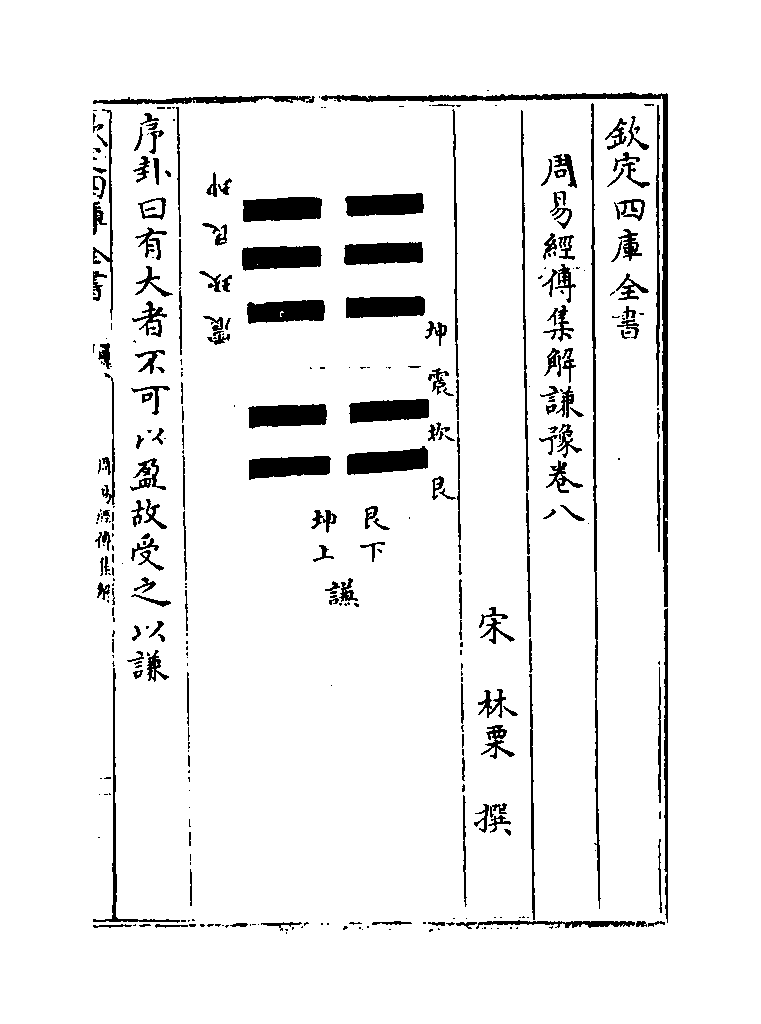 欽定四庫全書
周易經傳集解謙豫卷八
宋 林栗 撰
坤 震 坎 艮
艮下
坤上
謙
坤 艮 坎 震
序卦曰有大者不可以盈故受之以謙
欽定四庫全書
周易經傳集解